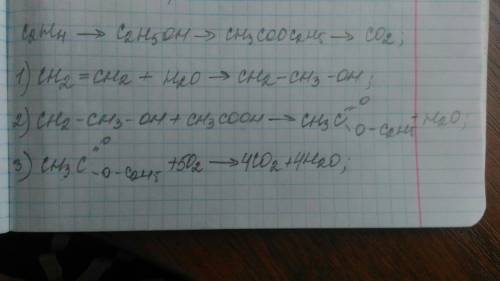 C2H4 → C2H5OH → CH3COOC2H5 → CO2;
1) CH2=CH2 + H2O → CH2-CH3-OH;
2) CH2-CH3-OH + CH3COOH → CH3C=O-O-C2H5 + H2O;
3) CH3C=O-O-C2H5 + 5O2 → 4CO2 + 4H2O;